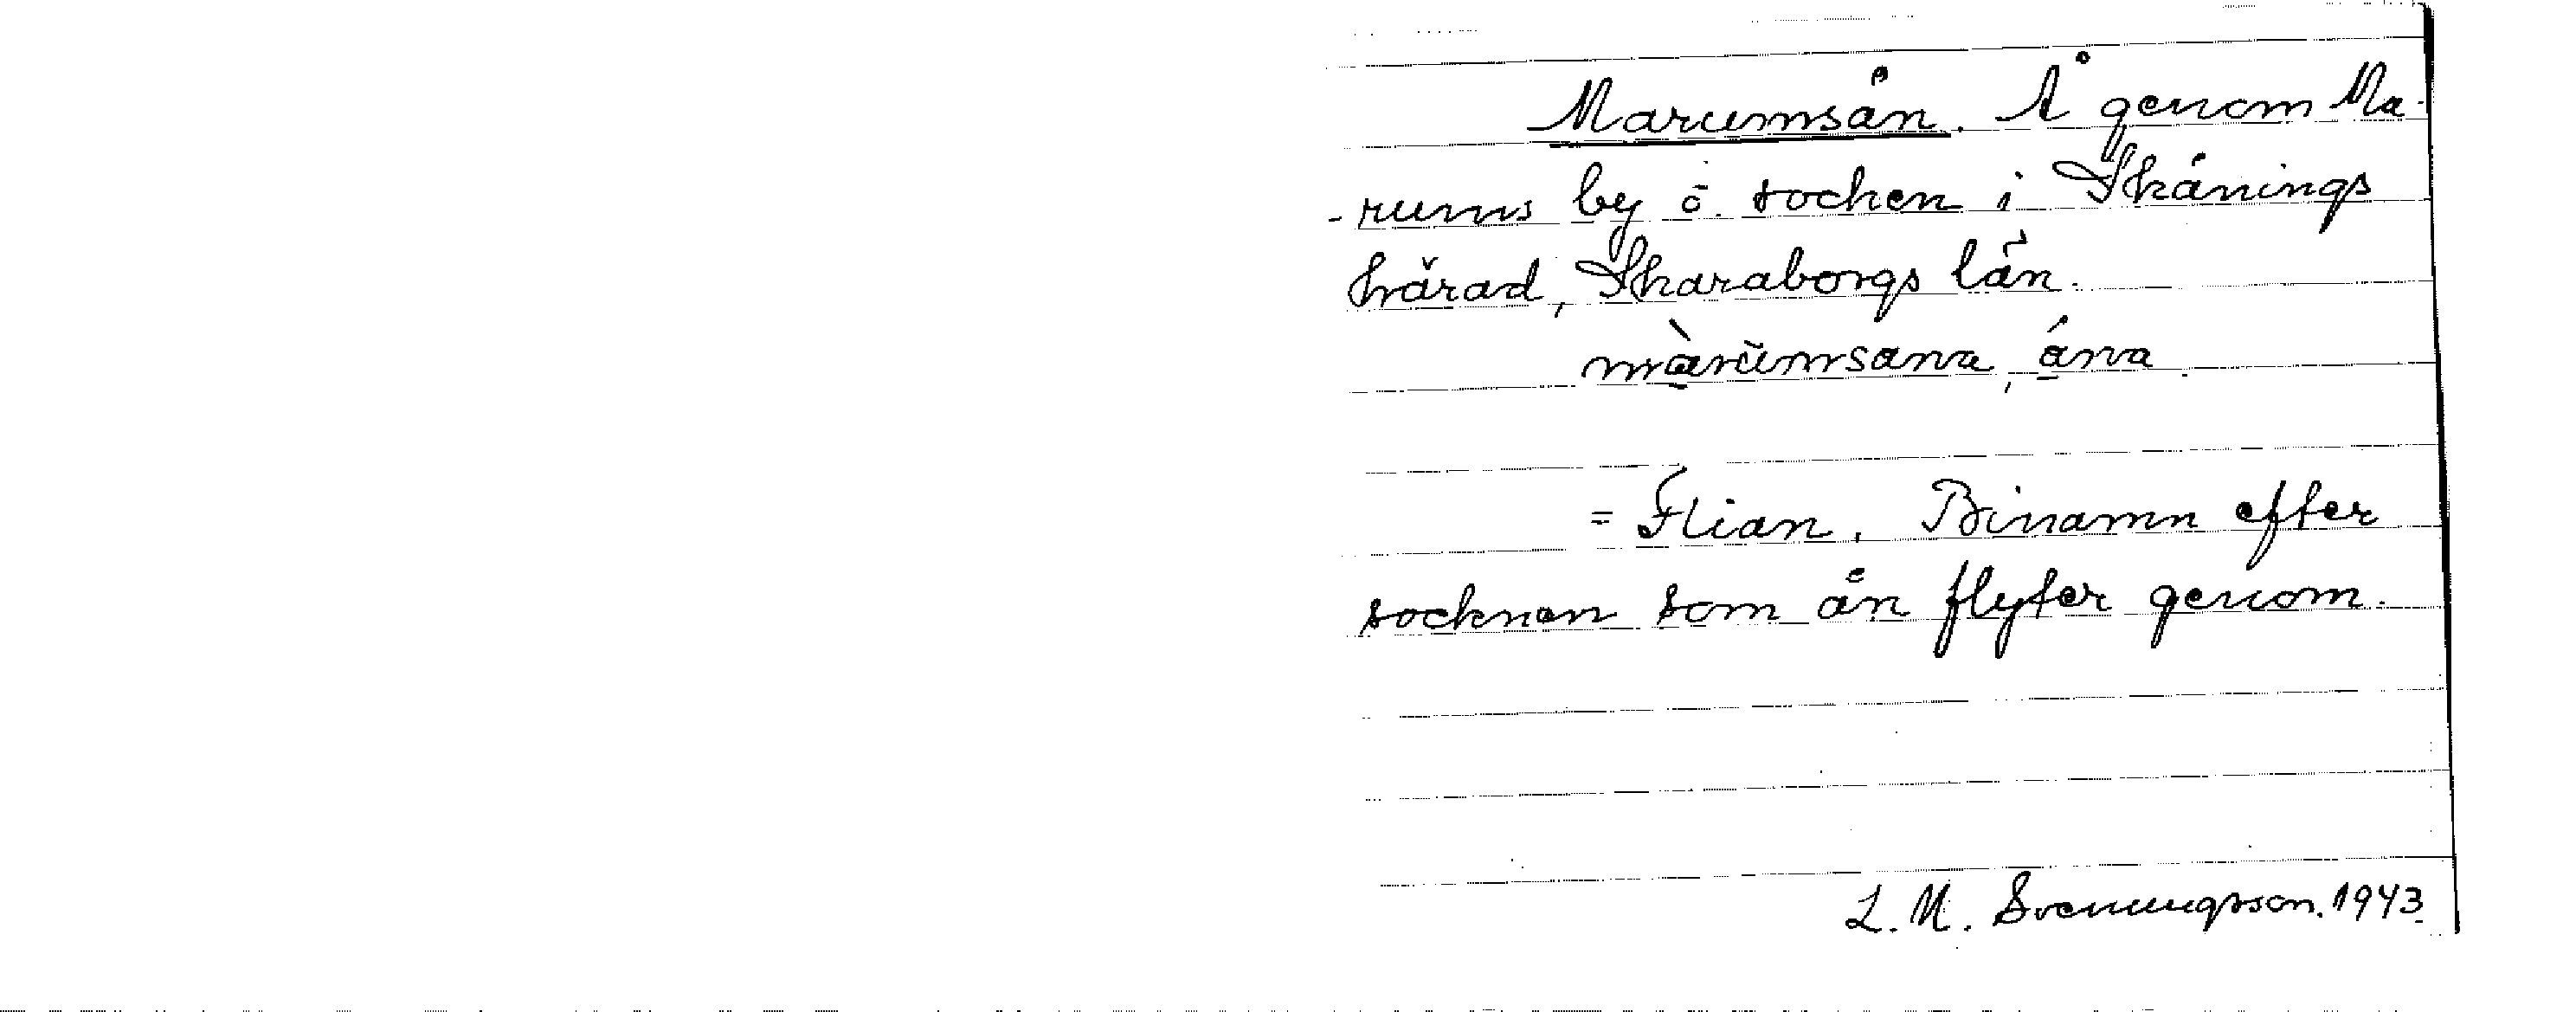 Marumsån. Å genom Ma-
-rums by o. socken i Skånings
härad, Skaraborgs län.
màrumsana, ána.
= Flian. Binamn efter
socknen som ån flyter genom.
L. M. Svenungsson. 1943